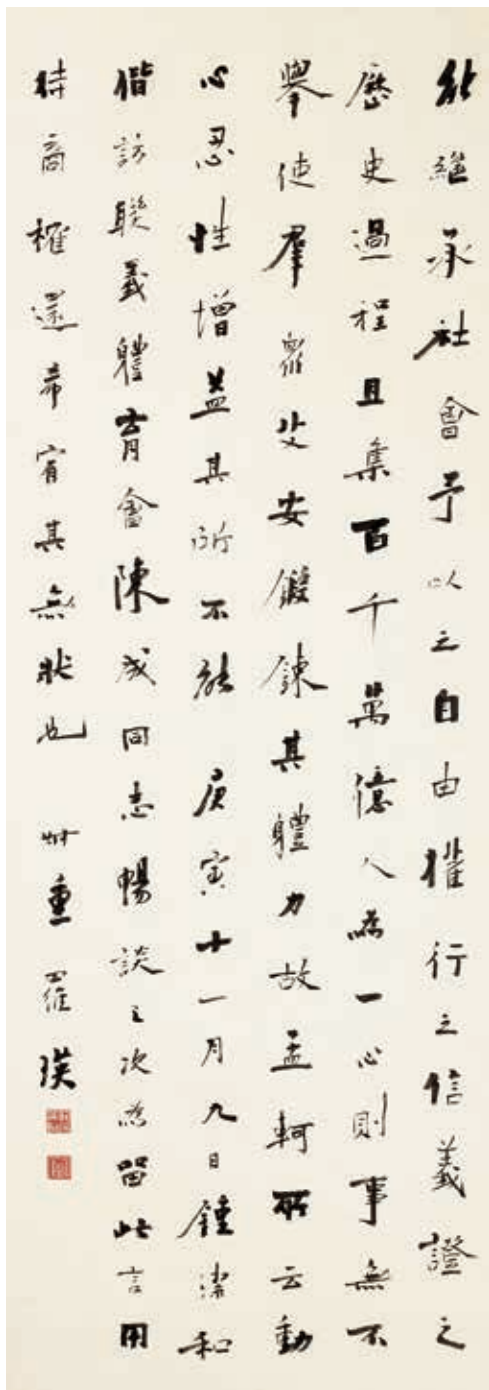 能继承社會予以之自由權行之信義證之
歷史過程且集百千萬億人為一心則事無不
舉使羣眾安鍛鍊其體力故孟軻所云動
心忍性增益其所不能 庚寅十一月九日鍾潔和
偕訪聯義體育會陳成同志暢談之次為留此言用
待商榷還希宥其無狀也 重羅瑛